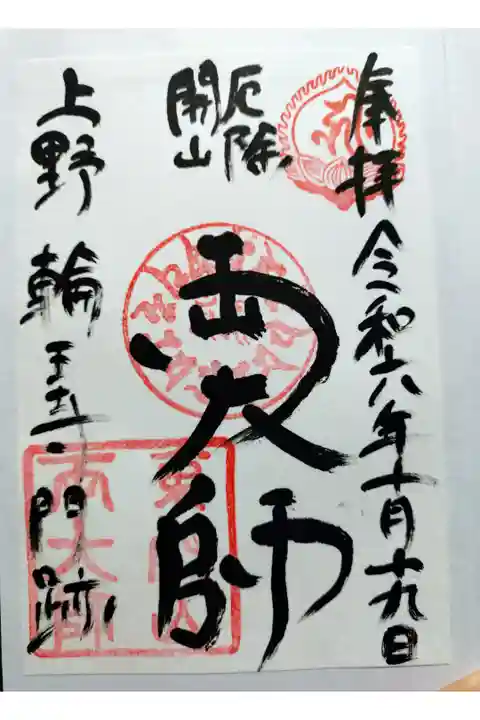 奉拝 令和六年十月十九日
厄除
開山
両大師
上野 輪王寺門跡